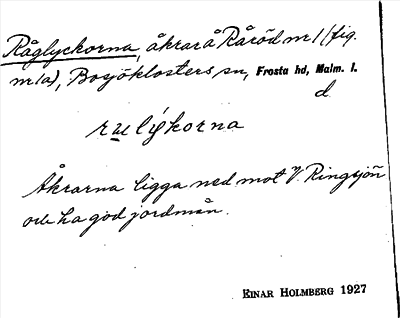 Råglyckorna, åkrar å Råröd nr 1 (fig.
nr 1a), Bosjöklosters sn, Frosta hd, Malm. l.
d.
ruligkorna
Åkrarna ligga ned mot V. Ringsjön
och ha god jordmån.
EINAR HOLMBERG 1927